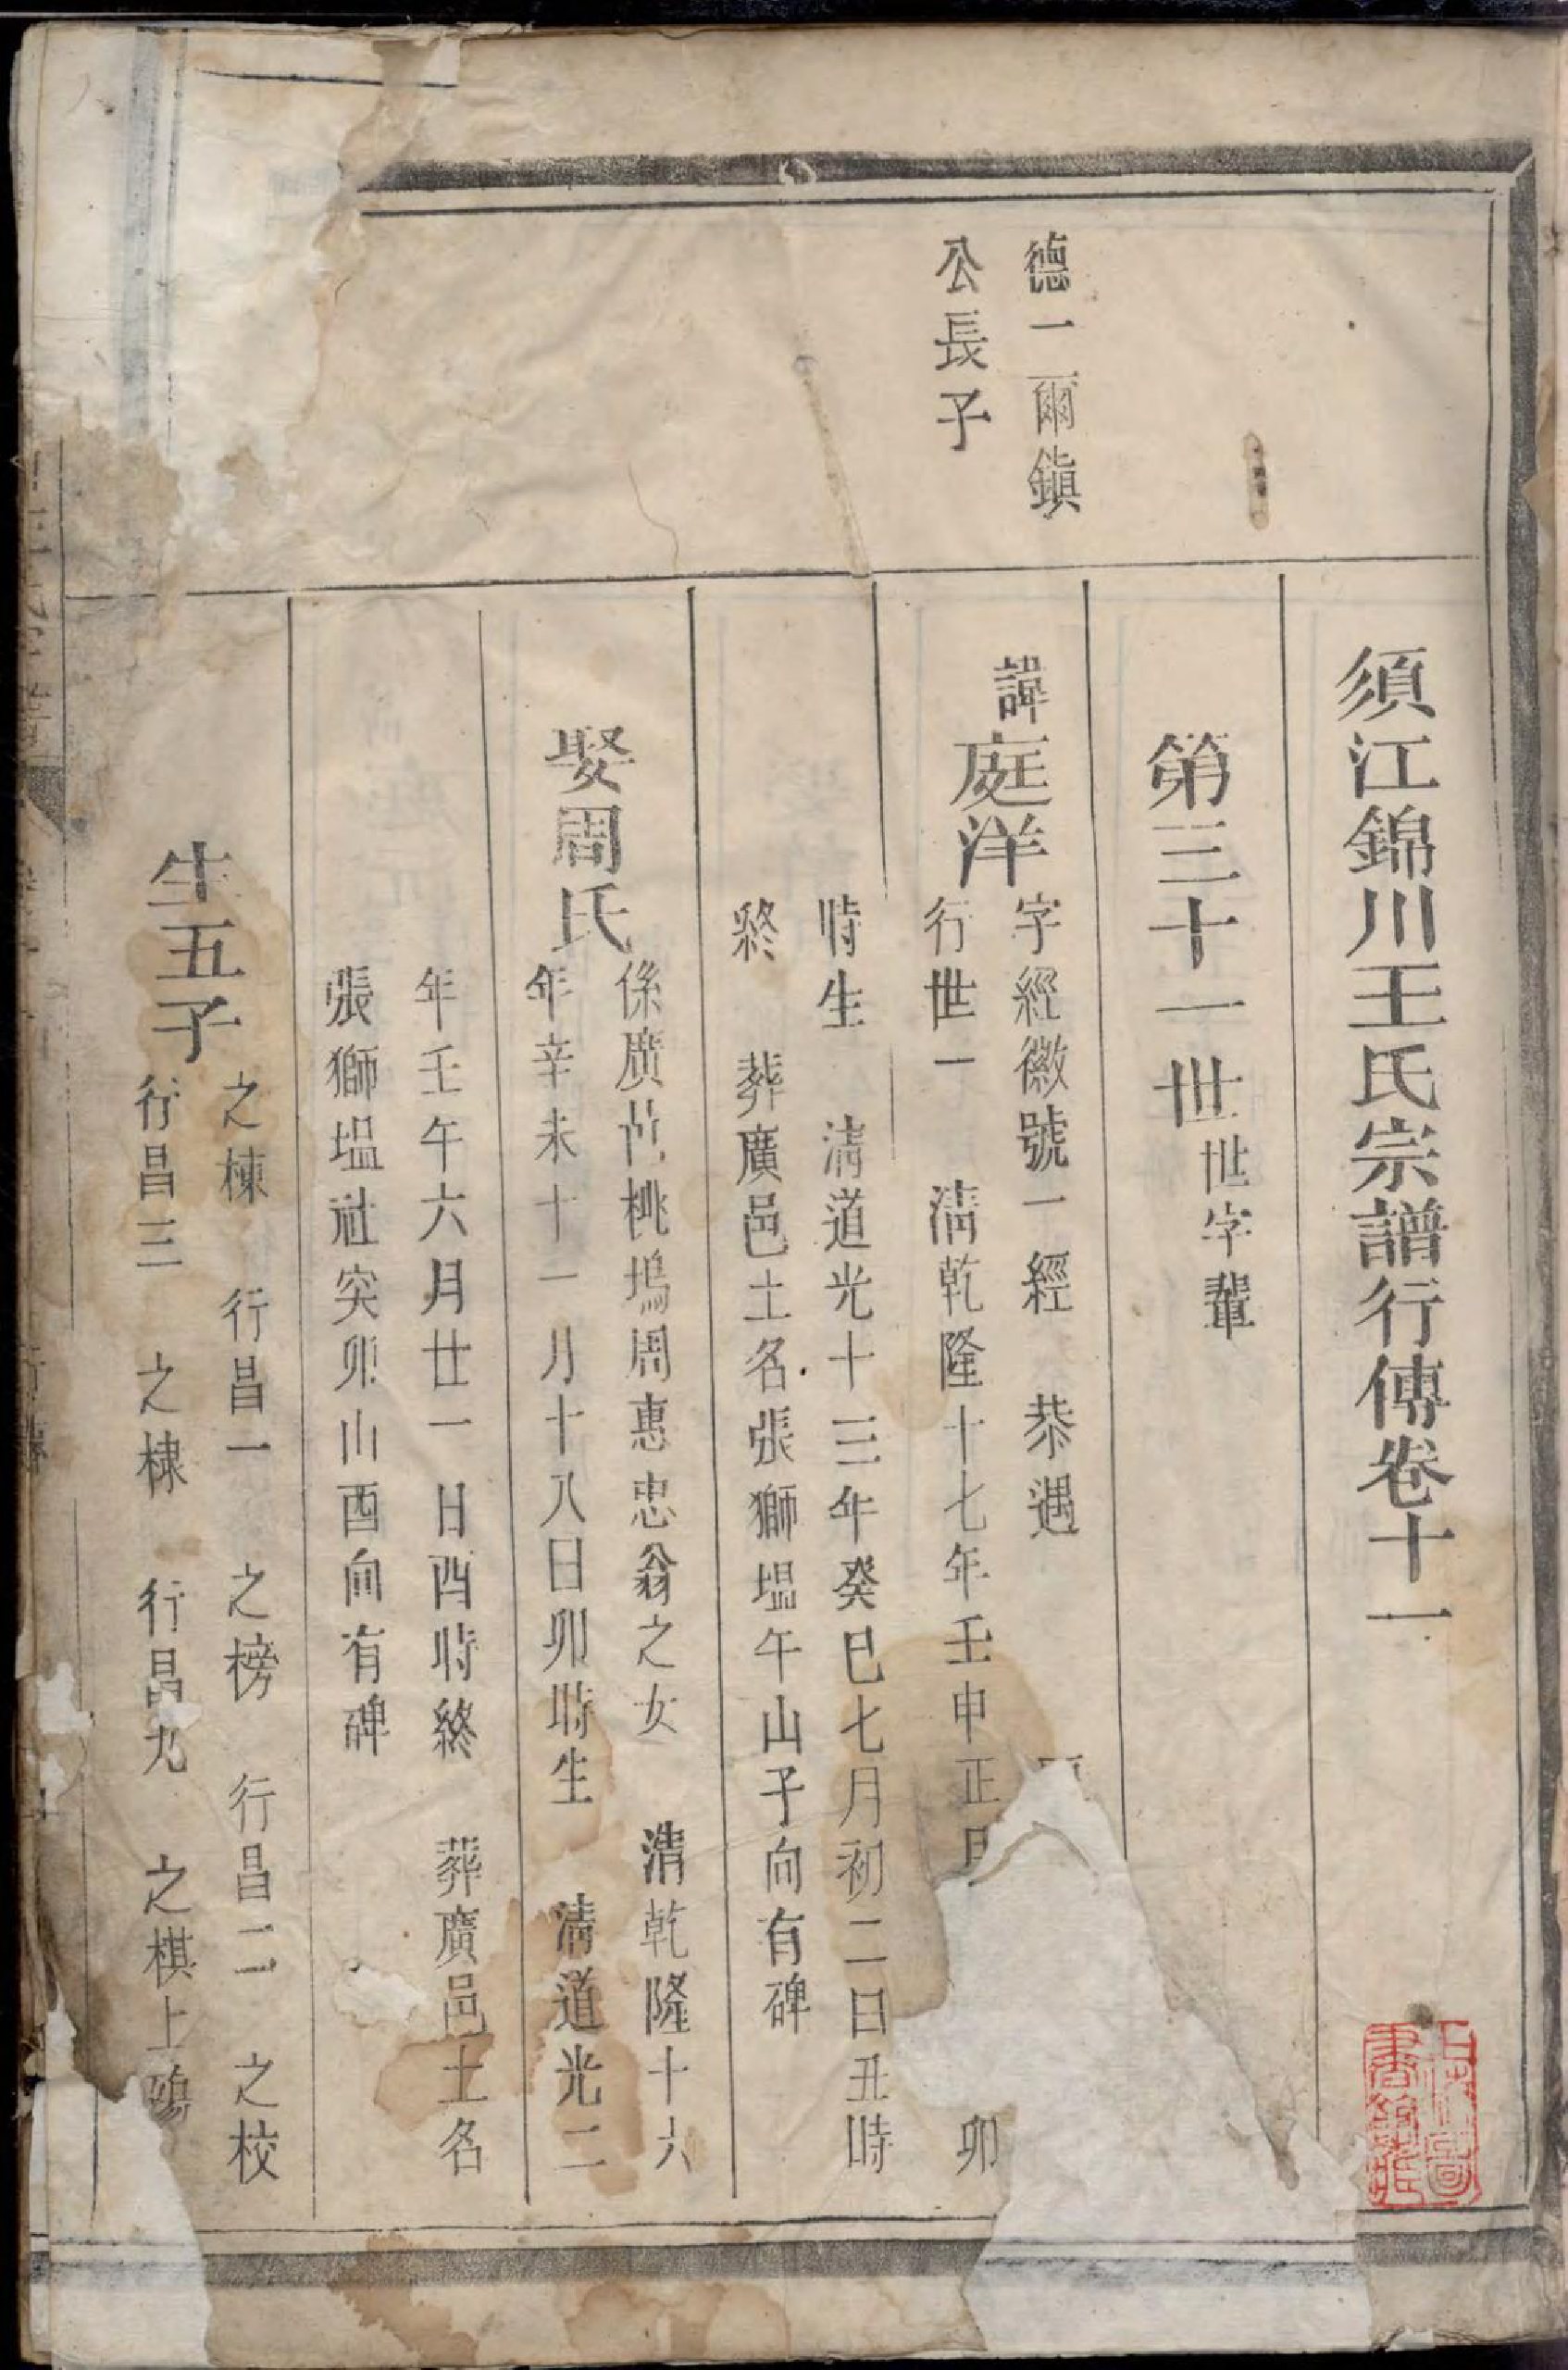 須江錦川王氏宗譜行傳卷十一
第三十一世世字輩
德一爾鎮
公長子
諱庭洋
字經徽號一經 恭遇
行世一 清乾隆十七年壬申正月 卯
時生 清道光十三年癸巳七月初二日丑時
終 葬廣邑土名張獅塭午山子向有碑
娶周氏
係廣邑桃塢周惠忠翁之女 清乾隆十六
年辛未十一月十八日卯時生 清道光二
年壬午六月廿一日酉時終 葬廣邑土名
張獅塭社突卯山酉向有碑
生五子
之棟 行昌一 之榜 行昌二 之校
行昌三 之棣 行昌九 之棋上殤